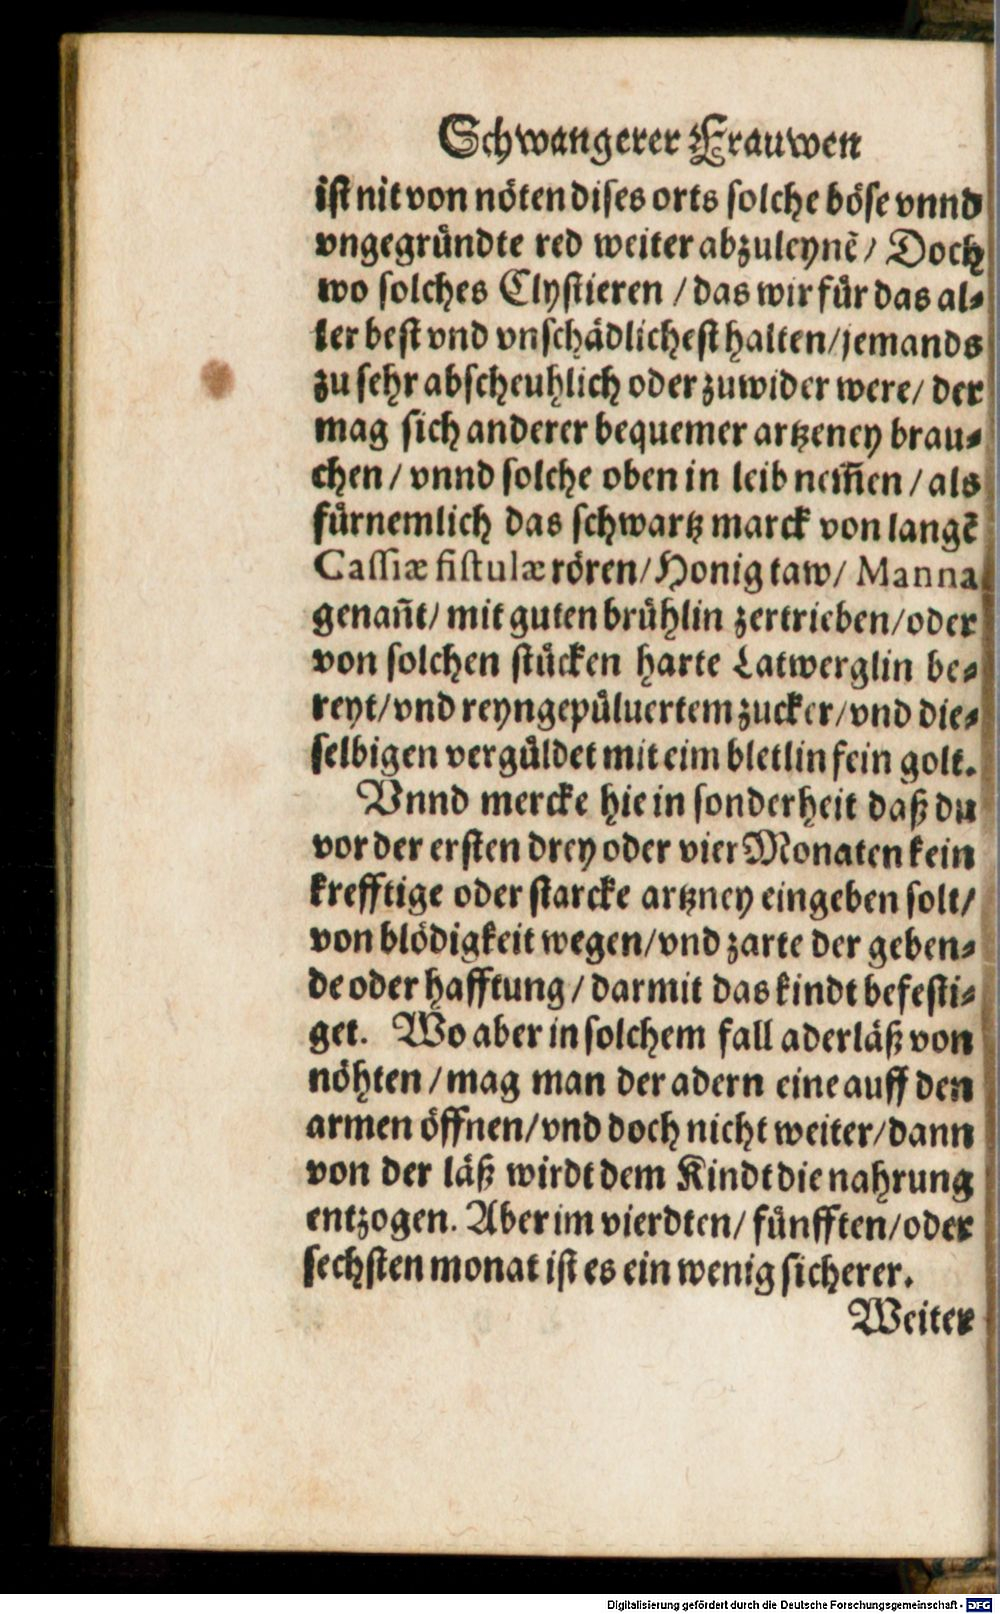 Schwangerer Frauwen
ist nit von nöten dises orts solche böse vnnd
vngegründte red weiter abzuleynẽ / Doch
wo solches Clystieren / das wir für das al⸗
ler best vnd vnschädlichest halten/jemands
zu sehr abscheuhlich oder zuwider were/ der
mag sich anderer bequemer artzeney brau⸗
chen / vnnd solche oben in leib nem̃en / als
fürnemlich das schwartz marck von langẽ
Cassiæ fistulæ rören/Honigtaw/ Manna
genañt/ mit guten brühlin zertrieben/oder
von solchen stücken harte Latwerglin be⸗
reyt/vnd reyngepüluertem zucker/vnd die⸗
selbigen vergüldet mit eim bletlin fein golt.
Vnnd mercke hie in sonderheit daß du
vor der ersten drey oder vier Monaten kein
krefftige oder starcke artzney eingeben solt/
von blödigkeit wegen/vnd zarte der geben⸗
de oder hafftung / darmit das kindt befesti⸗
get. Wo aber in solchem fall aderläß von
nöhten /mag man der adern eine auff den
armen öffnen/vnd doch nicht weiter/dann
von der läß wirdt dem Kindt die nahrung
entzogen. Aber im vierdten/ fünfften/oder
sechsten monat ist es ein wenig sicherer.
Weiter
Digitalisierung gefördert durch die Deutsche Forschungsgemeinschaft - DFG